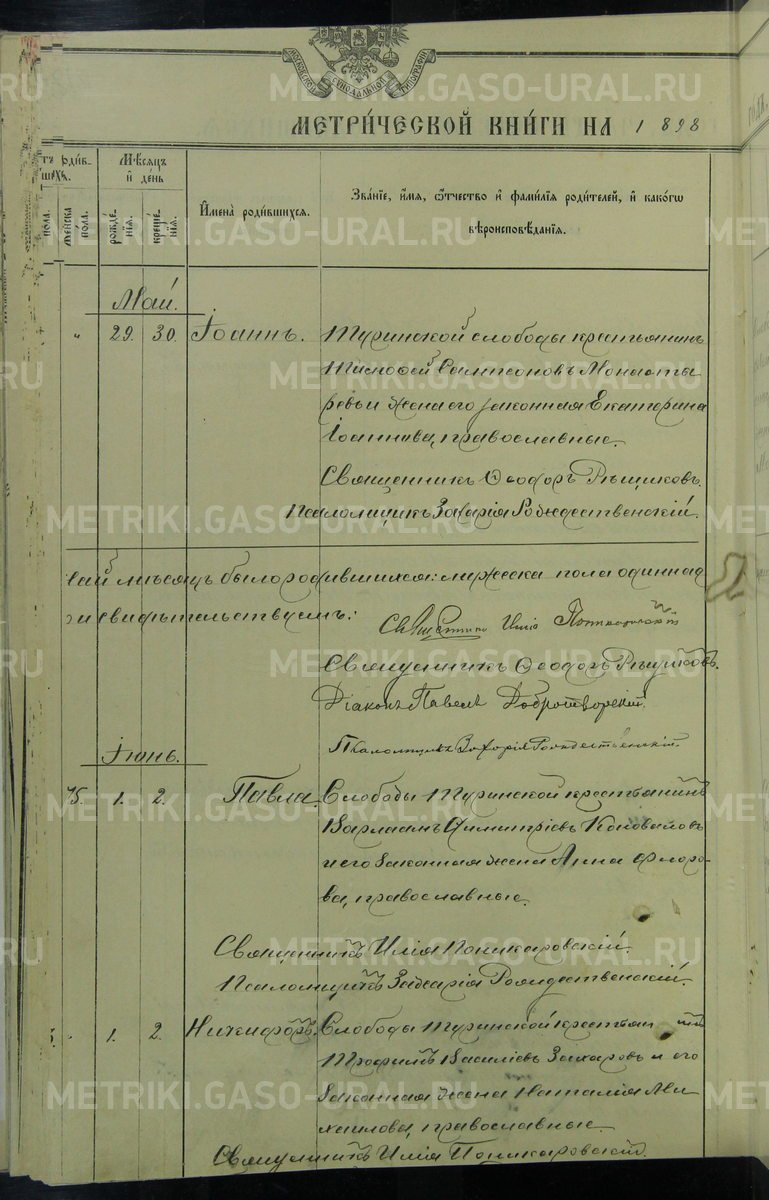 МОСКОВСКОЙ СѴНОДАЛЬНОЙ ТИПОГРАФІИ
МЕТРИ́ЧЕСКОЙ КНИ́ГИ НА 1898
Мѣсяцъ и день
рожде́нїя.
креще́нїя.
Имена̀ роди́вшихся.
Зва́нїе, и́мя, ѻ҆́тчество и҆ фами́лїя роди́телей, и҆ како́гѡ
вѣроисповѣ́данїя.
по́ла.
женска по́ла.
Май.
" 29. 30. Іоаннъ. Туринской слободы крестьянинъ
Тимофей Сампсоновъ Монасты
ревъ и жена его законная Екатерина
Іоаннова, православные.
Священникъ Ѳеодоръ Рѣщиковъ.
Псаломщикъ Захарія Рождественскій.
май мѣсяцъ было родившихся: мужеска пола одиннад
свидѣтельствуемъ:
Священникъ Илія Поникаровскій
Священникъ Ѳеодоръ Рѣщиковъ.
Діаконъ Павелъ Добротворскій.
Псаломщикъ Захарія Рождественскій.
Іюнь.
1. 2. Павла. Слободы Туринской крестьянинъ
Варлаамъ Димитріевъ Коноваловъ
и его законная жена Анна Флоро-
ва, православные.
Священникъ Илія Поникаровскій.
Псаломщикъ Захарія Рождественскій.
" 1. 2. Никифоръ. Слободы Туринской крестьянинъ
Трофимъ Василіевъ Захаровъ и его
законная жена Наталія Ми
хаилова, православные.
Священникъ Илія Поникаровскій.
METRIKI.GASO-URAL.RU